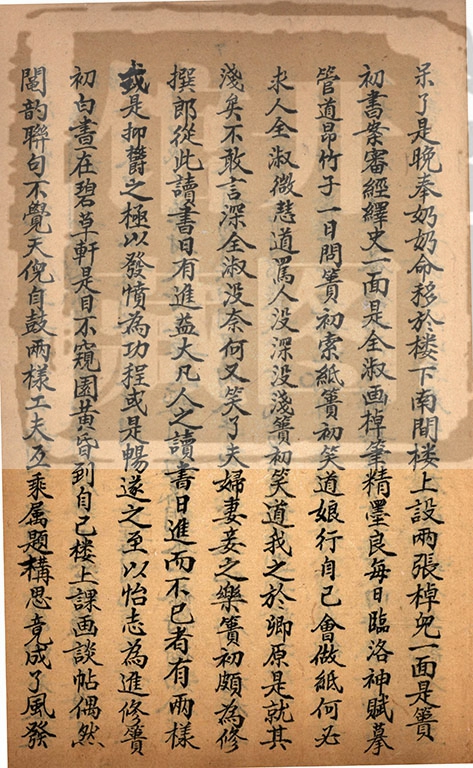 呆了是晚奉奶奶命移於楼下南間楼上設兩張棹兒一面是簣
初書案審經繹史一面是全淑画棹筆精墨良每日臨洛神賦摹
管道昂竹子一日問簣初索紙簣初笑道娘行自己會做紙何必
求人全淑微慧道罵人没深没淺簣初笑道我之於卿原是就其
淺矣不敢言深全淑没奈何又笑了夫婦妻妾之樂簣初頗為修
撰郎從此讀書日有進益大凡人之讀書日進而不已者有兩様
或是抑欝之極以發憤為功程或是暢遂之至以怡志為進修簣
初白晝在碧草軒是目不窺園黄昏到自己楼上課画談帖偶然
鬮韵聯句不覺天倪自鼓兩様工夫互乘属題構思竟成了風發